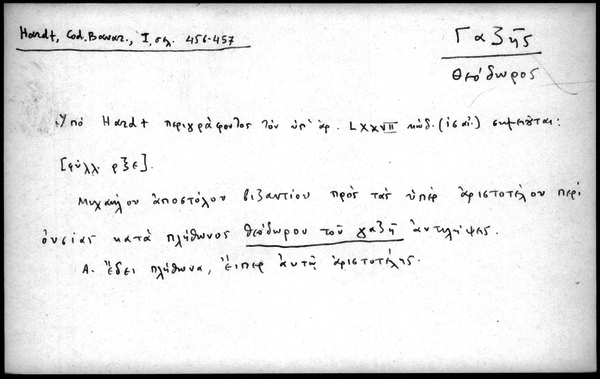 Hardt, Cod. Bavar., I, σελ. 456-457
Γαζῆς
Θεόδωρος
Ὑπό Hardt περιγράφοντος τόν ὑπ' ἀρ. LXXVII κώδ. (ις αἰ.) σημειοῦται:
[φύλλ. ρξε].
Μιχαήλου ἀποστόλου βιζαντίου πρὸς τὰς ὑπὲρ ἀριστοτέλου περὶ
ὀυσίας κατὰ πλήθωνος θεοδώρου τοῦ γαζῆ ἀντιλήψεις.
Α. ἔδει πλήθωνα, ἔιπερ ἀυτῷ ἀριστοτέλης.